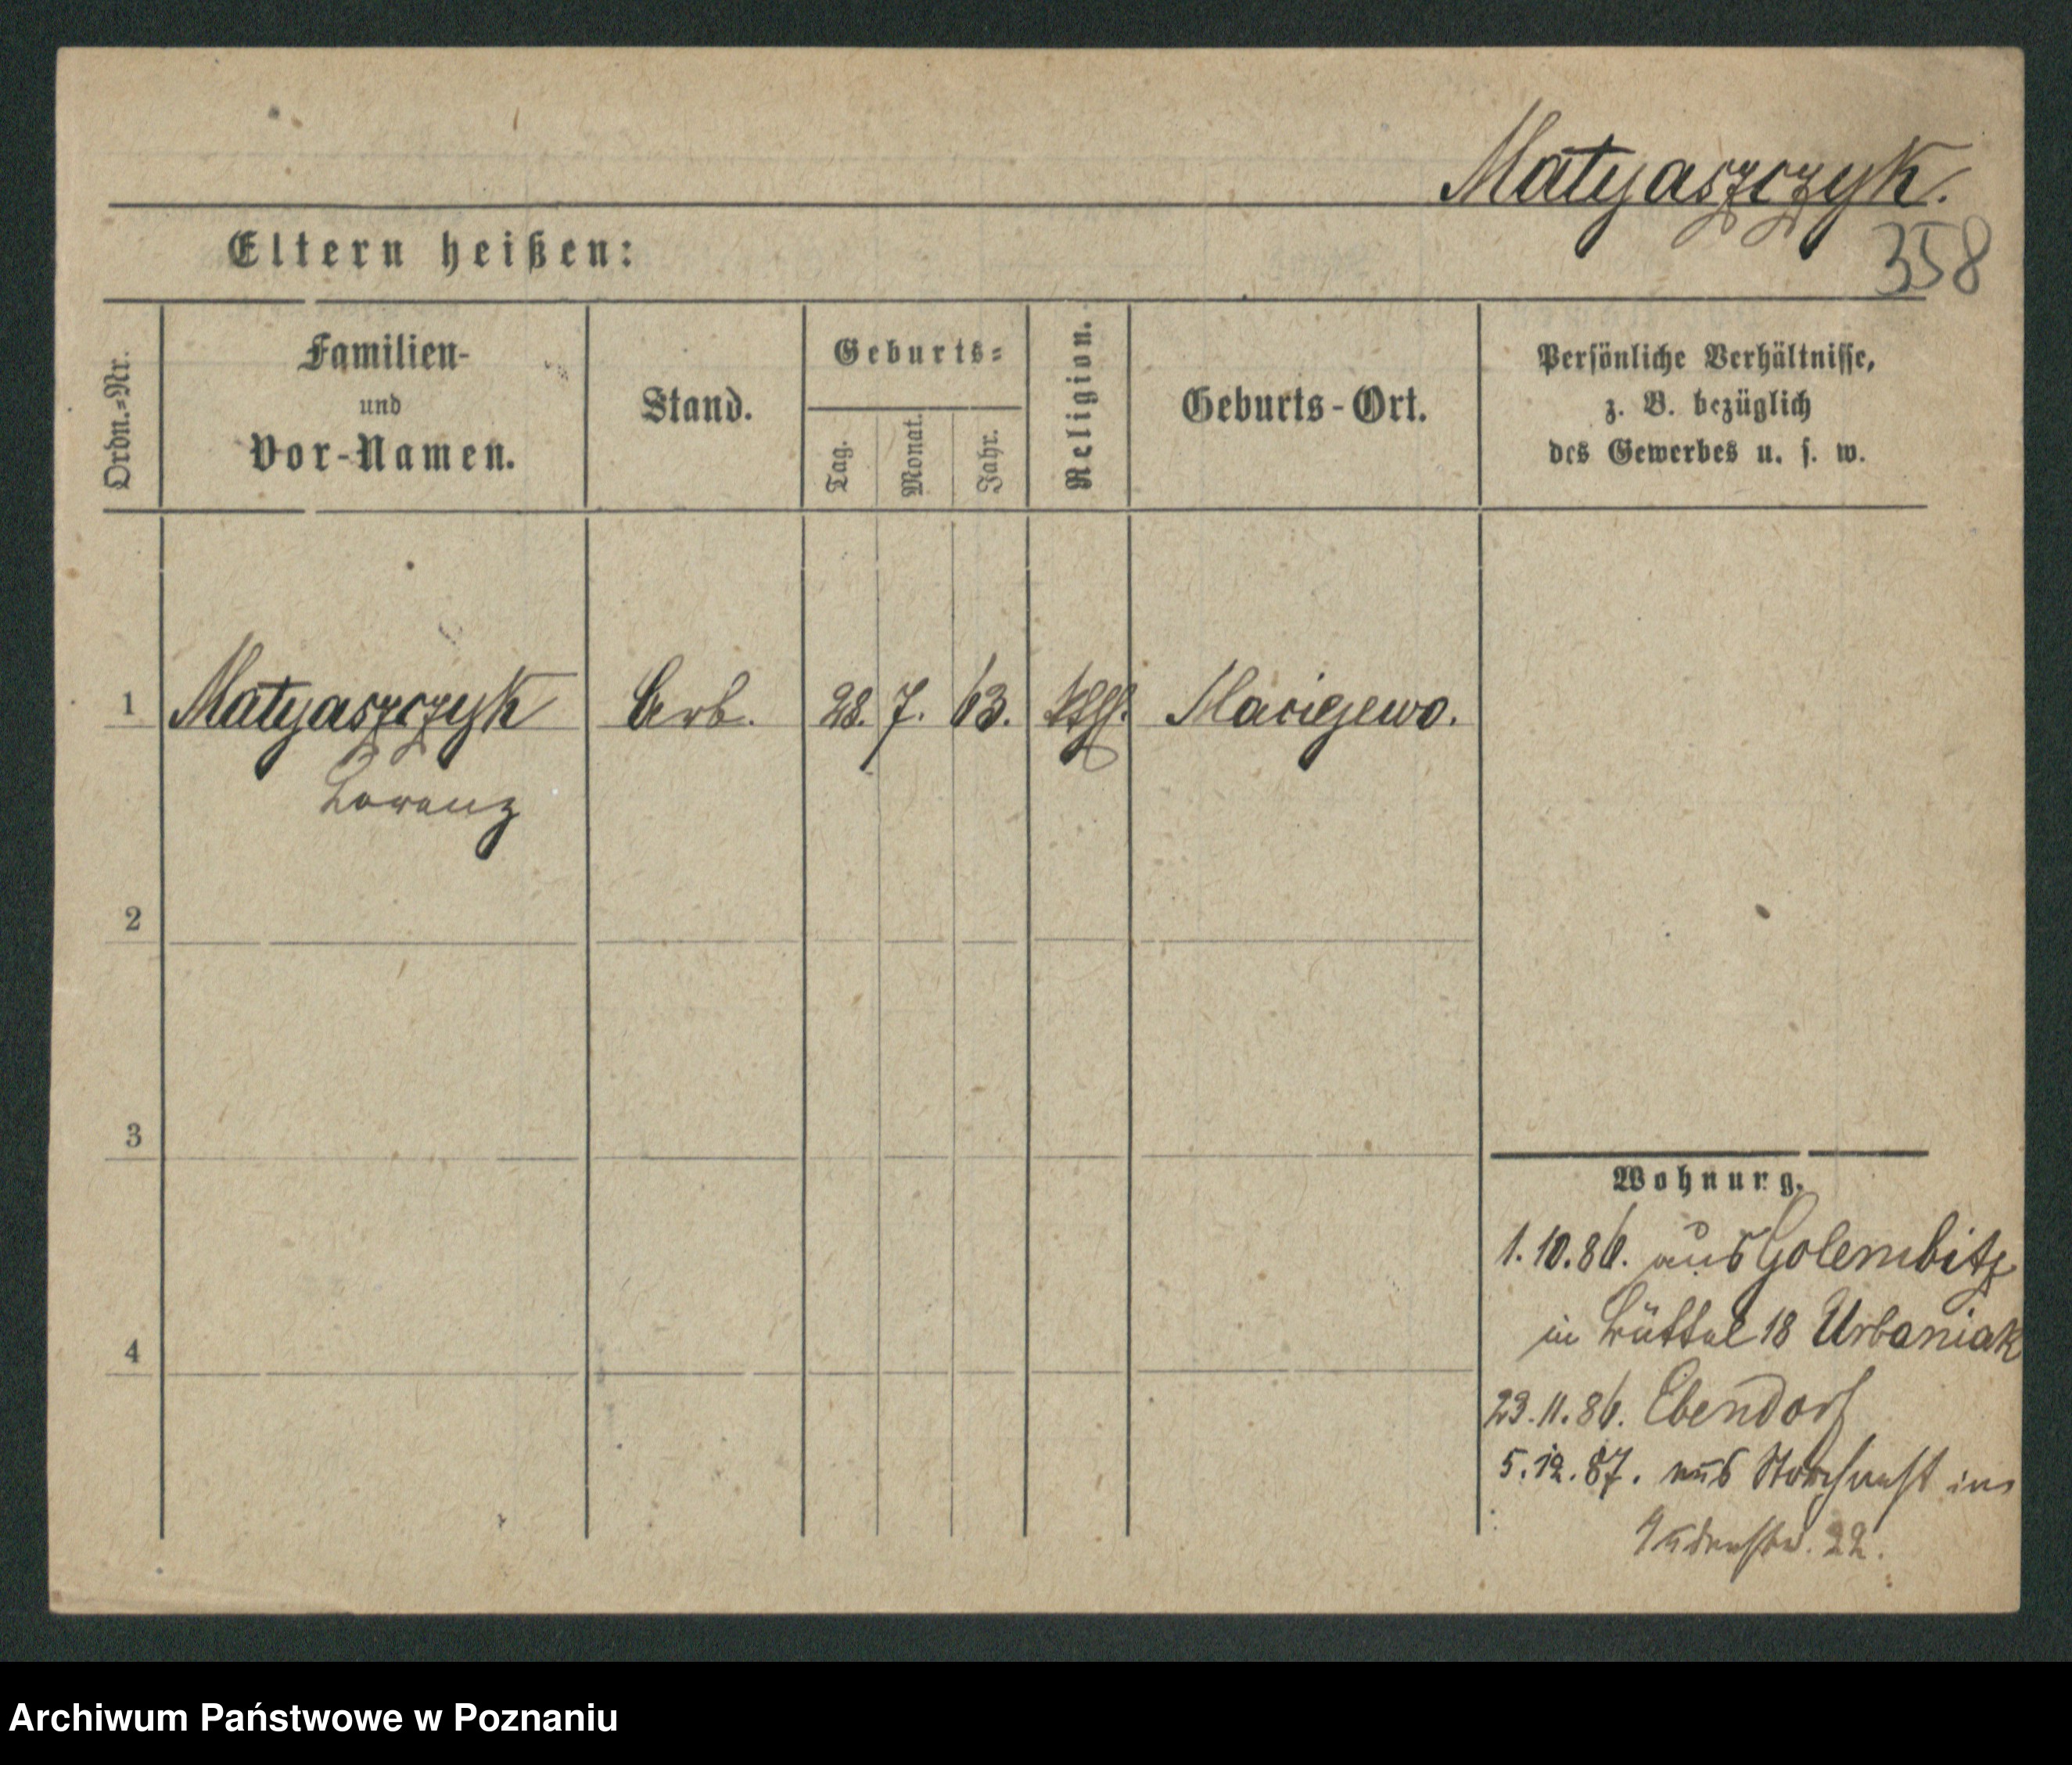 Matyaszczyk.
358
Eltern heißen:
Ordn.-Nr.
Familien-
und
Vor-Namen.
Stand.
Geburts-
Tag.
Monat.
Jahr.
Religion.
Geburts-Ort.
Persönliche Verhältnisse,
z. B. bezüglich
des Gewerbes u. s. w.
1 Matyaszczyk Arb. 28. 7. 63. kth. Macigewo.
Lorenz
2
3
Wohnung.
1.10.86. aus Golembitz
in 18 Urbaniak
4
23.11.86. Ebendorf
5.12.87. aus Storchnest in
22.
Archiwum Państwowe w Poznaniu